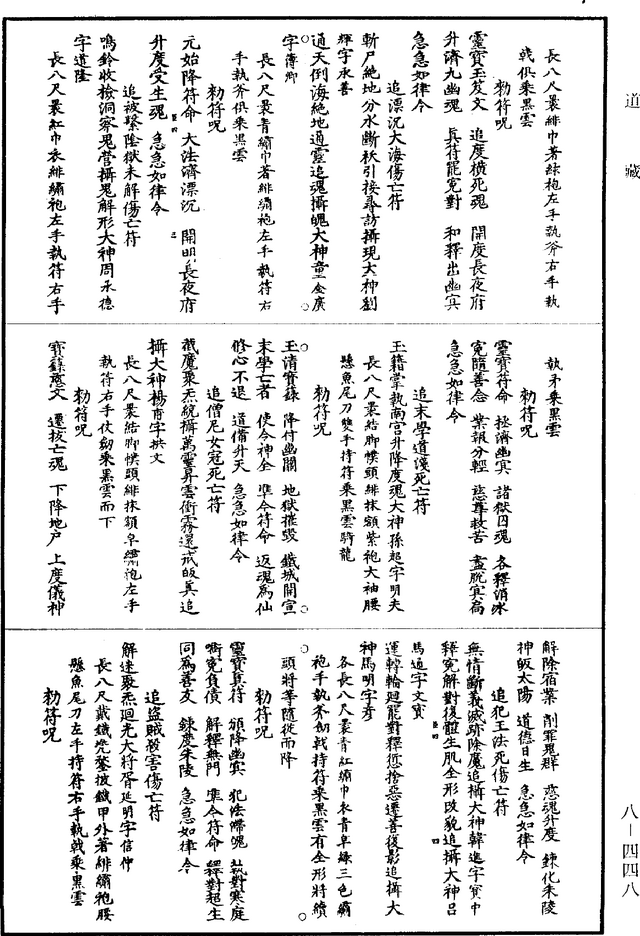 道藏
長八尺裹緋巾著綠袍左手執斧右手執
戟俱乘黑雲
勑符呪
靈寶玉笈文　追度橫死魂　開度長夜府
升濟九幽魂　真符罷寃對　和釋出幽冥
急急如律令
追漂沉大海傷亡符
斬尸絶地分水斷妖引接尋訪攝現大神劉
輝字永善
通天倒海絶地通靈追魂攝魄大神童金廣
字傳卿
長八尺裹青繡巾著緋繡袍左手執符右
手執斧俱乘黑雲
勑符呪
元始降符命　大法濟漂沉　開明長夜府
升度受生魂　急急如律令
追被繫陰獄未解傷亡符
鳴鈴收檢洞察鬼營攝鬼解形大神周永德
字道隆
長八尺裹紅巾衣緋繡袍左手執符右手
執矛乘黑雲
勑符呪
靈寶符命　拯濟幽冥　諸獄囚魂　各釋湏冰
寃隨善念　業報分輕　慈尊救苦　盡脫冥扃
急急如律令
追末學道淺死亡符
玉籍掌執南宮升降度魂大神孫超字明夫
長八尺裹結脚幞頭緋抹額紫袍大袖腰
懸魚尾刀雙手持符乘黑雲騎龍
勑符呪
玉清寶籙　降付幽關　地獄摧毀　鐵城開宣
末學亡者　使令神全　準令符命　返魂為仙
修心不退　道備升天　急急如律令
追僧尼女冠死亡符
截魔聚炁統攝萬靈昇雲衝霧還戒皈真追
攝大神楊育字拱文
長八尺裹結脚幞頭緋抹額皁繡袍左手
執符右手仗劒乘黑雲而下
勑符呪
寶籙慈文　還拔亡魂　下降地戶　上度儀神
解除宿業　削罪鬼群　慈魂升度　鍊化朱陵
神皈太陽　道德日生　急急如律令
追犯王法死傷亡符
無情斷義滅跡除魔追攝大神韓進字寶中
釋寃解對復體生肌全形改貌追攝大神呂
馬適字文寶
運轉輪廻罷對釋愆捨惡還善復影追攝大
神馬明字奇
各長八尺裹青紅繡巾衣青皁綠三色繡
袍手執斧劒戟持符乘黑雲有全形將續
頭將等隨從而降
勑符呪
靈寶真符　頒降幽冥　犯法歸魄　執對寒庭
嘶寃負債　解釋無門　準今符命　釋對超生
同為善友　鍊慶朱陵　急急如律令
追盜賊殺害傷亡符
解達聚炁廻光大將胥延明字信仲
長八尺戴鐵兠鍪披鐵甲外著緋繡袍腰
懸魚尾刀左手持符右手執戟乘黑雲
勑符呪
八—四四八